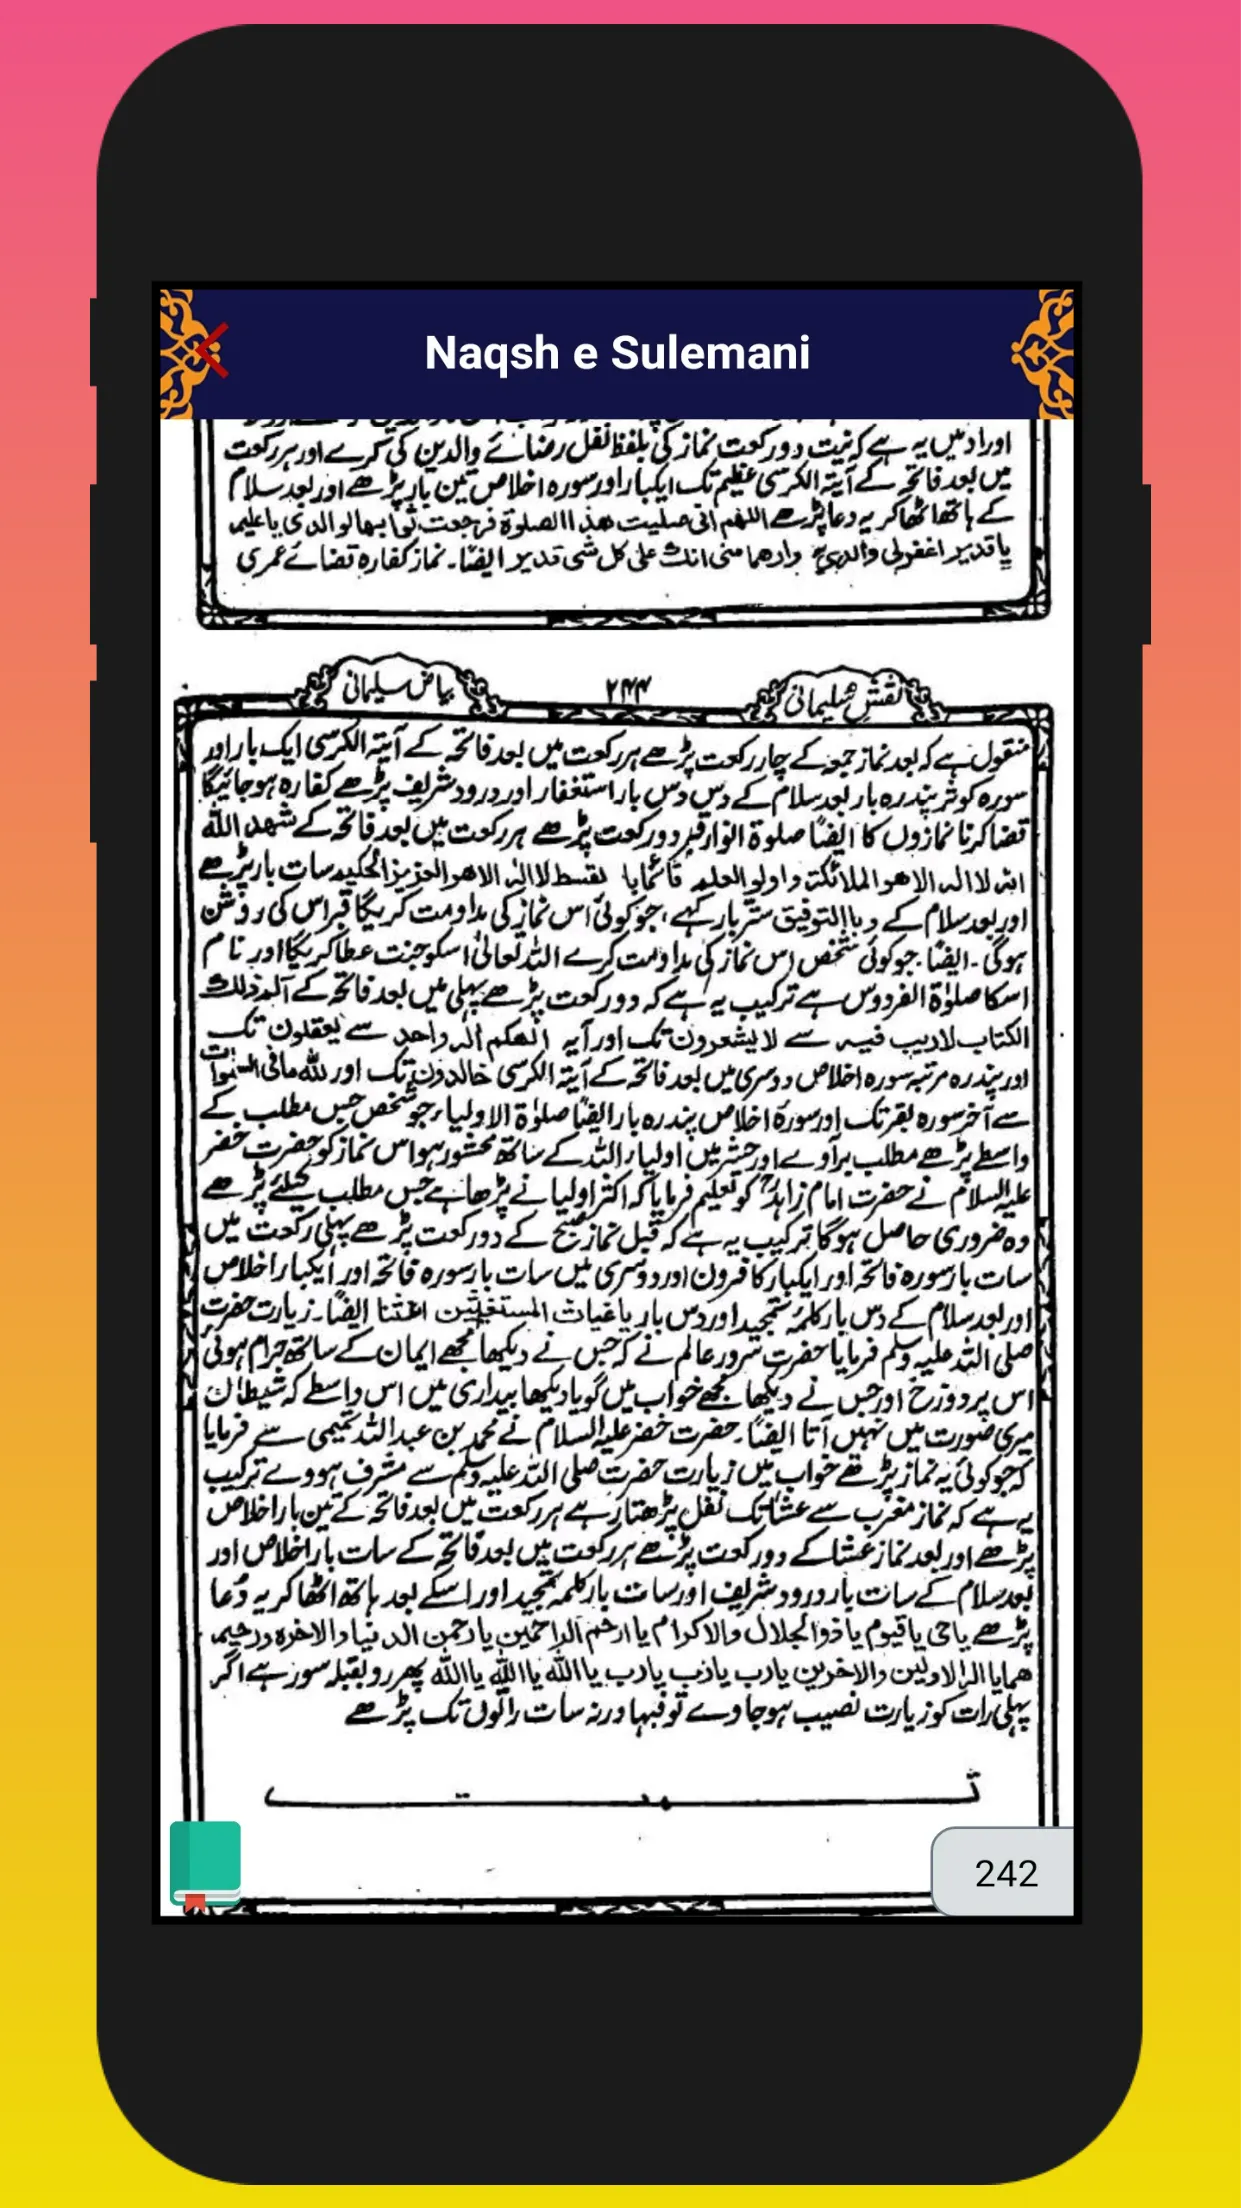 Naqsh e Sulemani
اوراد میں یہ ہے کہ نیت دو رکعت نماز کی بلفظ نفل رضائے والدین کی کرے اور ہر رکعت
میں بعد فاتحہ کے آیتہ الکرسی عظیم تک ایکبار اور سورہ اخلاص تین بار پڑھے اور بعد سلام
کے ہاتھ اٹھا کر یہ دعا پڑھے اللھم انی صلیت ھذا الصلوۃ فرجعت ثوابھا لوالدی یا علیم
یا قدیر اغفرلی والدی وارھما منی انک علی کل شی قدیر ایضًا۔ نماز کفارہ قضائے عمری
نقش سلیمانی
۲۴۴
بیاض سیلمانی
منقول ہے کہ بعد نماز جمعہ کے چار رکعت پڑھے ہر رکعت میں بعد فاتحہ کے آیتہ الکرسی ایک بار اور
سورہ کوثر پندرہ بار بعد سلام کے دس دس بار استغفار اور درود شریف پڑھے کفارہ ہو جائیگا
قضا کرنا نمازوں کا ایضًا صلوۃ النوار قبر دو رکعت پڑھے ہر رکعت میں بعد فاتحہ کے شھد اللہ
انہ لا الہ الا ھو الملائکتہ و اولو العلم قائما با لقسط لا الہ الا ھو العزیز الحکیم سات بار پڑھے
اور بعد سلام کے و باالتوفیق ستر بار کہے، جو کوئی اس نماز کی مداومت کریگا قبر اس کی روشن
ہوگی۔ ایضًا۔ جو کوئی شخص اس نماز کی مداومت کرے اللہ تعالیٰ اسکو جنت عطا کریگا اور نام
اسکا صلوٰۃ الفردوس ہے ترکیب یہ ہے کہ دو رکعت پڑھے پہلی میں بعد فاتحہ کے آلم ذلک
الکتاب لا ریب فیہ سے لا یشعرون تک اور آیہ الھکم الہ واحد سے یعقلون تک
اور پندرہ مرتبہ سورہ اخلاص دوسری میں بعد فاتحہ کے آیتہ الکرسی خالدون تک اور للہ مافی السموات
سے آخر سورہ بقر تک اور سورۃ اخلاص پندرہ بار ایضًا صلوٰۃ الاولیاء جو شخص جس مطلب کے
واسطے پڑھے مطلب بر آوے اور حشر میں اولیاء اللہ کے ساتھ محشور ہو اس نماز کو حضرت خضر
علیہ السلام نے حضرت امام زاہدؒ کو تعلیم فرمایا کہ اکثر اولیا نے پڑھا ہے جس مطلب کیلئے پڑھے
وہ ضروری حاصل ہوگا ترکیب یہ ہے کہ قبل نماز صبح کے دو رکعت پڑھے پہلی رکعت میں
سات بار سورہ فاتحہ اور ایکبار کافرون اور دوسری میں سات بار سورہ فاتحہ اور ایکبار اخلاص
اور بعد سلام کے دس بار کلمۂ تمجید اور دس بار یا غیاث المستغیثین اغثنا ایضًا۔ زیارت حضرت
صلی اللہ علیہ وسلم فرمایا حضرت سرور عالم نے کہ جس نے دیکھا مجھے ایمان کے ساتھ حرام ہوئی
اس پر دوزخ اور جس نے دیکھا مجھے خواب میں گویا دیکھا بیداری میں اس واسطے کہ شیطان
میری صورت میں نہیں آتا ایضًا۔ حضرت خضر علیہ السلام نے محمد بن عبد اللہ تمیمی سے فرمایا
کہ جو کوئی یہ نماز پڑھے خواب میں زیارت حضرت صلی اللہ علیہ وسلم سے مشرف ہووے ترکیب
یہ ہے کہ نماز مغرب سے عشا تک نفل پڑھتا رہے ہر رکعت میں بعد فاتحہ کے تین بار اخلاص
پڑھے اور بعد نماز عشا کے دو رکعت پڑھے ہر رکعت میں بعد فاتحہ کے سات بار اخلاص اور
بعد سلام کے سات بار درود شریف اور سات بار کلمہ تمجید اور اسکے بعد ہاتھ اٹھا کر یہ دُعا
پڑھے یا حی یا قیوم یا ذوالجلال والاکرام یا ارحم الراحمین یا رحمن الدنیا والاخرہ ورحیم
ھما یا الہ الاولین والاخرین یارب یارب یارب یا اللہ یا اللہ یا اللہ پھر رو بقبلہ سو رہے اگر
پہلی رات کو زیارت نصیب ہو جاوے تو فبہا ورنہ سات راتوں تک پڑھے
تمت
242